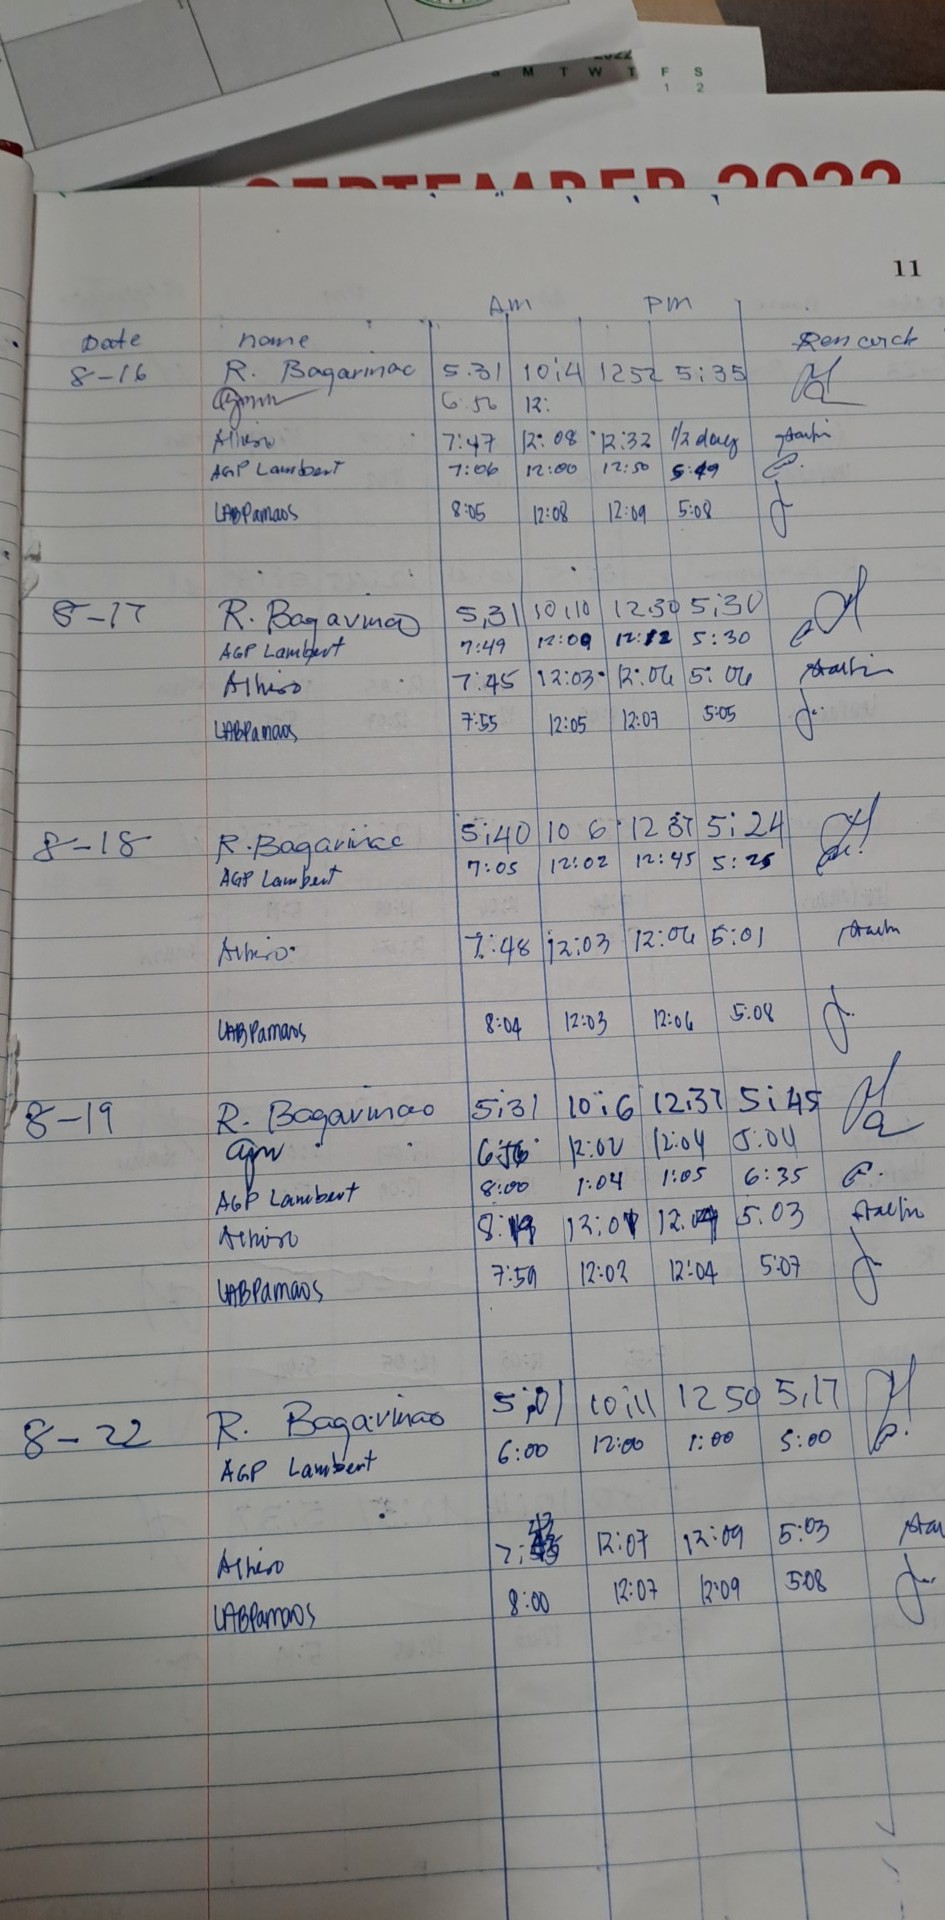 2022
S M T W T F S
1 2
SEPTEMBER 2022
11
Am Pm
Date name
8-16 R. Bagarinao 5:31 10:14 1252 5:35
6:56 12:
Alhiro 7:47 12:08 12:32 1/2 day
AGP Lambert 7:06 12:00 12:50 5:49
LABPamaos 8:05 12:08 12:09 5:08
8-17 R. Bagarinao 5,31 10,10 12:30 5:30
AGP Lambert 7:49 12:09 12:12 5:30
Alhiro 7:45 12:03 12:06 5:06
LABPamaos 7:55 12:05 12:07 5:05
8-18 R. Bagarinao 5:40 10 6 12 37 5:24
AGP Lambert 7:05 12:02 12:45 5:25
Alhiro 7:48 12:03 12:06 5:01
LABPamaos 8:04 12:03 12:06 5:08
8-19 R. Bagarinao 5:31 10:6 12:37 5:45
agm 6:56 12:02 12:04 5:04
AGP Lambert 8:00 1:04 1:05 6:35
Alhiro 12.04 5.03
LABPamaos 7:59 12:02 12:04 5:07
8-22 R. Bagarinao 10:11 12 50 5,17
AGP Lambert 6:00 12:00 1:00 5:00
Alhiro 12:07 12:09 5:03
LABPamaos 8:00 12:07 12:09 508